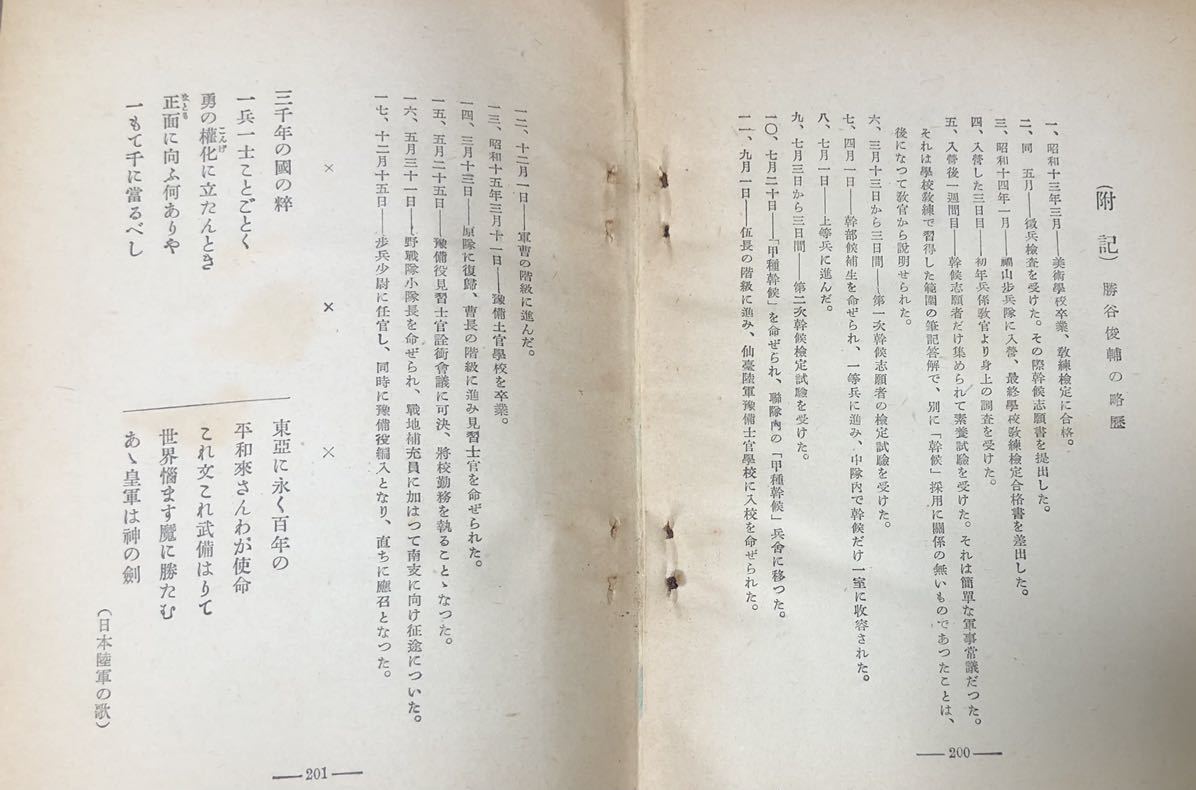 (附記) 勝谷俊輔の略歷
一、昭和十三年三月――美術學校卒業、敎練檢定に合格。
二、同 五月――徵兵檢査を受けた。その際幹候志願書を提出した。
三、昭和十四年一月――福山步兵隊に入營、最終學校敎練檢定合格書を差出した。
四、入營した三日目――初年兵係敎官より身上の調査を受けた。
五、入營後一週間目――幹候志願者だけ集められて素養試驗を受けた。それは簡單な軍事常議だつた。
それは學校敎練で習得した範圍の筆記答解で、別に「幹候」採用に關係の無いものであつたことは、
後になつて敎官から說明せられた。
六、三月十三日から三日間――第一次幹候志願者の檢定試驗を受けた。
七、四月一日――幹部候補生を命ぜられ、一等兵に進み、中隊內で幹候だけ一室に收容された。
八、七月一日――上等兵に進んだ。
九、七月三日から三日間――第二次幹候檢定試驗を受けた。
一〇、七月二十日――「甲種幹候」を命ぜられ、聯隊內の「甲種幹候」兵舍に移つた。
一一、九月一日――伍長の階級に進み、仙臺陸軍豫備士官學校に入校を命ぜられた。
200
一二、十二月一日――軍曹の階級に進んだ。
一三、昭和十五年三月十一日――豫備士官學校を卒業。
一四、三月十三日――原隊に復歸、曹長の階級に進み見習士官を命ぜられた。
一五、五月二十五日――豫備役見習士官詮衡會議に可決、將校勤務を執ることゝなつた。
一六、五月三十一日――野戰隊小隊長を命ぜられ、戰地補充員に加はつて南支に向け征途についた。
一七、十二月十五日――步兵少尉に任官し、同時に豫備役編入となり、直ちに應召となつた。
× × ×
三千年の國の粹
一兵一士ことごとく
勇の權化に立たんとき
正面に向ふ何ありや
一もて千に當るべし
東亞に永く百年の
平和來さんわが使命
これ文これ武備はりて
世界惱ます魔に勝たむ
あゝ皇軍は神の劍
(日本陸軍の歌)
201